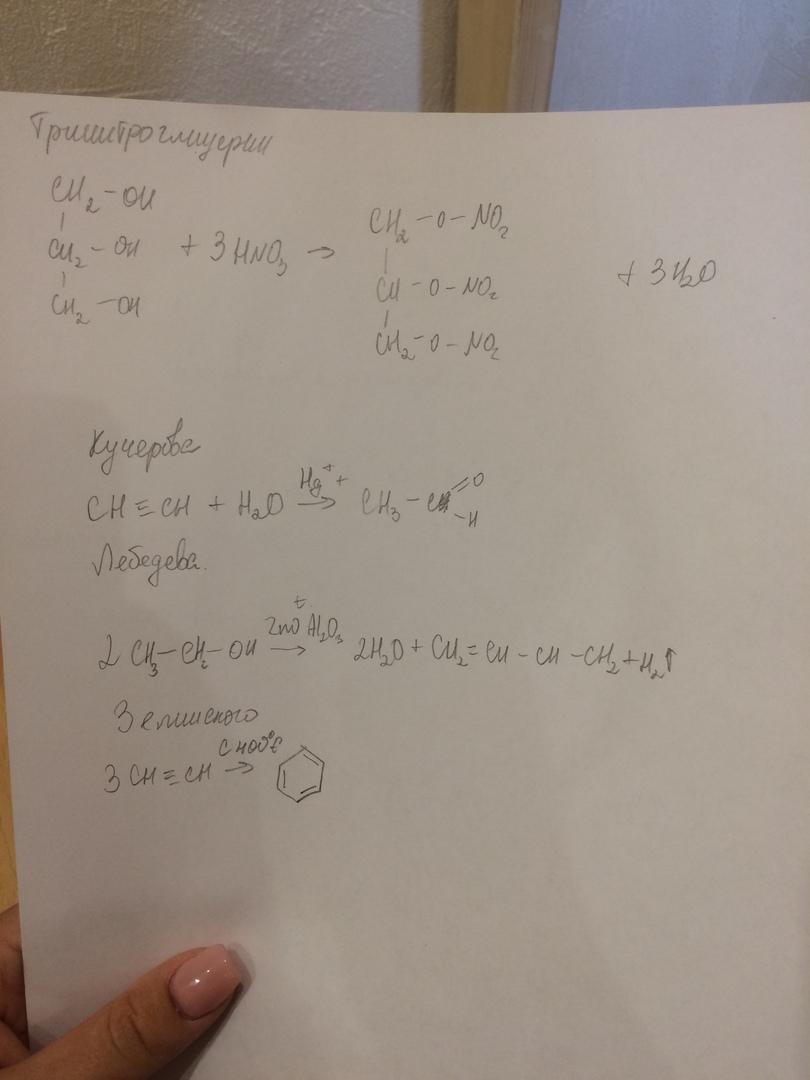 Тринитроглицерин
CH2 - OH
CH2 - OH + 3 HNO3 → 
CH2 - OH
CH2 - O - NO2
CH - O - NO2
CH2 - O - NO2
+ 3H2O
Кучерова
CH ≡ CH + H2O Hg++ → CH3 - C =O -H
Лебедева.
2 CH3 - CH2 - OH t ZnO Al2O3 → 2H2O + CH2 = CH - CH - CH2 + H2↑
Зелинского
3 CH ≡ CH C 400° →